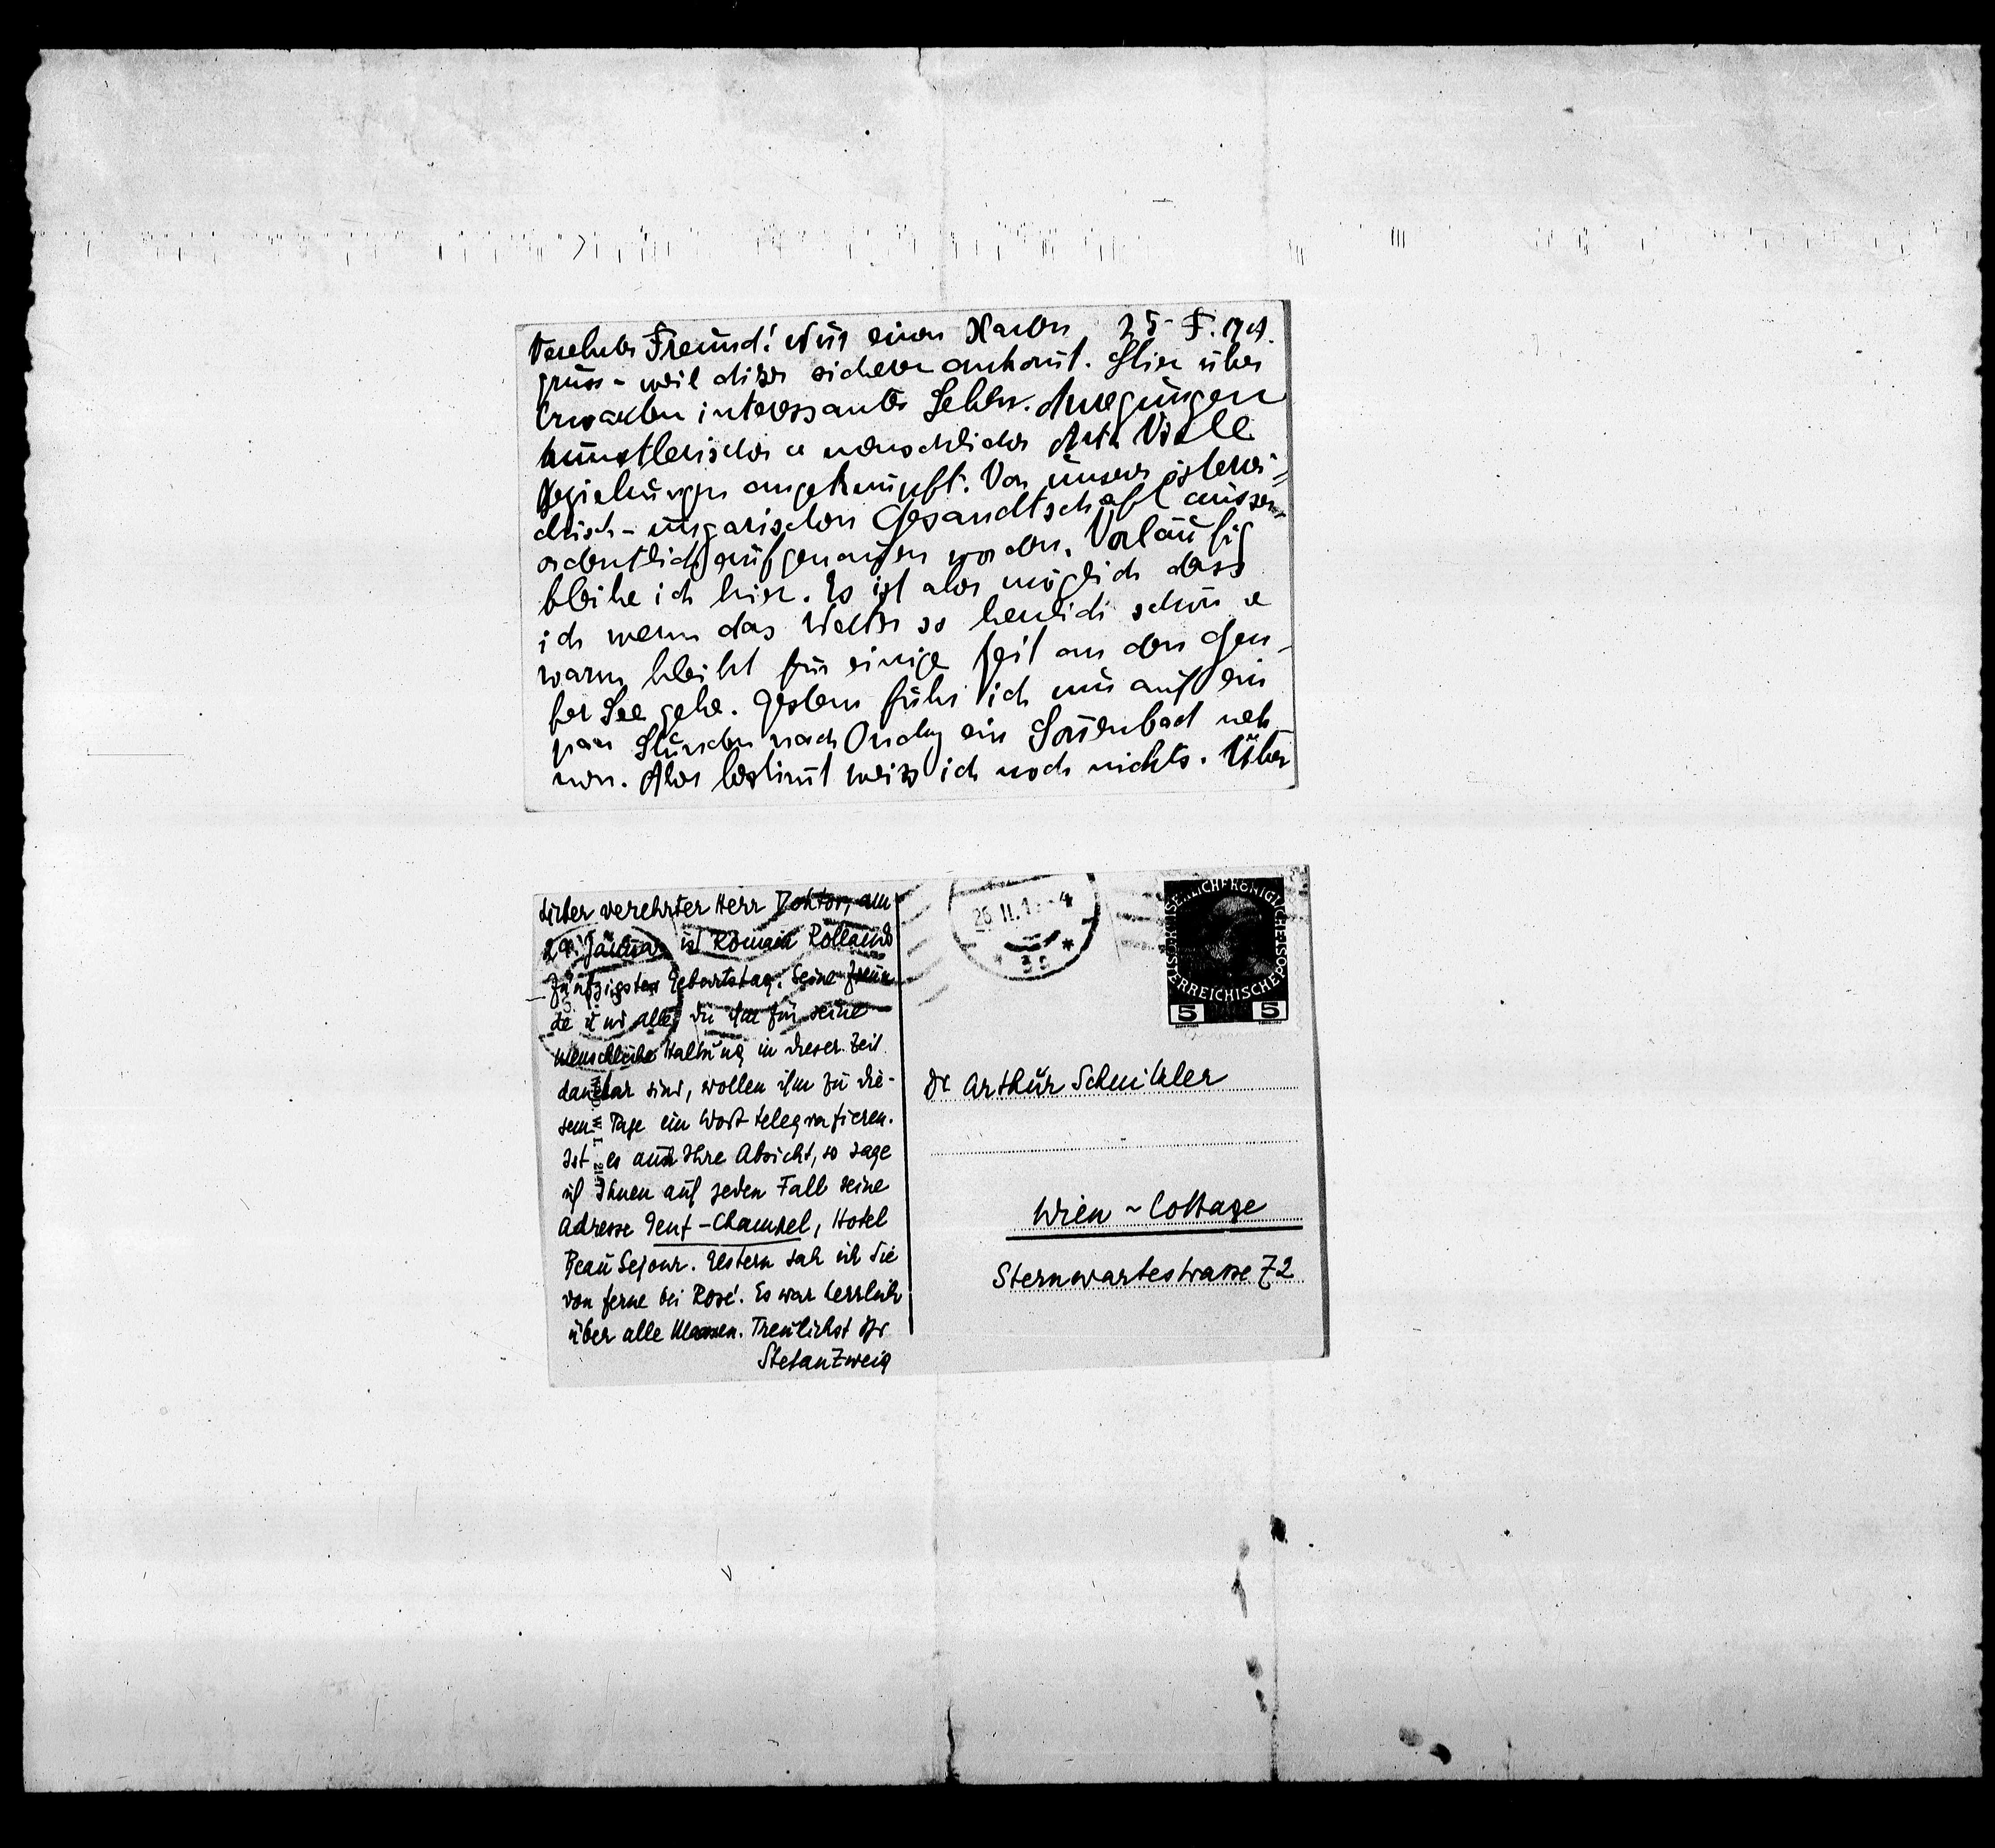 Verehrter Freund! Nur einen Karten 25. F. 19
gruss - weil dieser sicherer ankomt. Hier über
Erwarten interessantes Leben. Anregungen
künstlerischer u menschlicher Art. Viele
Beziehungen angeknüpft. Von unserer österrei=
chisch-ungarischen Gesandtschaft ausser
ordentlich aufgenommen worden. Vorläufig
bleibe ich hier. Es ist aber möglich dass
ich wenn das Wetter so herrlich schön u
warm bleibt für einige Zeit an den Gen-
fer See gehe. Gestern fuhr ich nur auf ein
paar Stunden nach Ouchy ein Sonnenbad neh
men. Aber bestimt weiss ich noch nichts. Über
Lieber verehrter Herr Doktor, am
29. Januar ist Romain Rollands
fünfzigster Geburtstag. Seine Freun
de u wir alle, die ihm für seine
menschliche Haltung in dieser Zeit
dankbar sind, wollen ihm zu die-
sem Tage ein Wort telegrafieren.
Ist es auch Ihre Absicht, so sage
ich Ihnen auf jeden Fall seine
Adresse Genf-Champel, Hotel
Beau Sejour. Gestern sah ich Sie
von ferne bei Rosé. Es war herrlich
über alle Massen. Treulichst Ihr
Stefan Zweig
26 II. 1 - 4
KAISERLICH KÖNIGLICHE ÖSTERREICHISCHE POST
5 5
Dr Arthur Schnitzler
Wien - Cottage
Sternwartestrasse 72